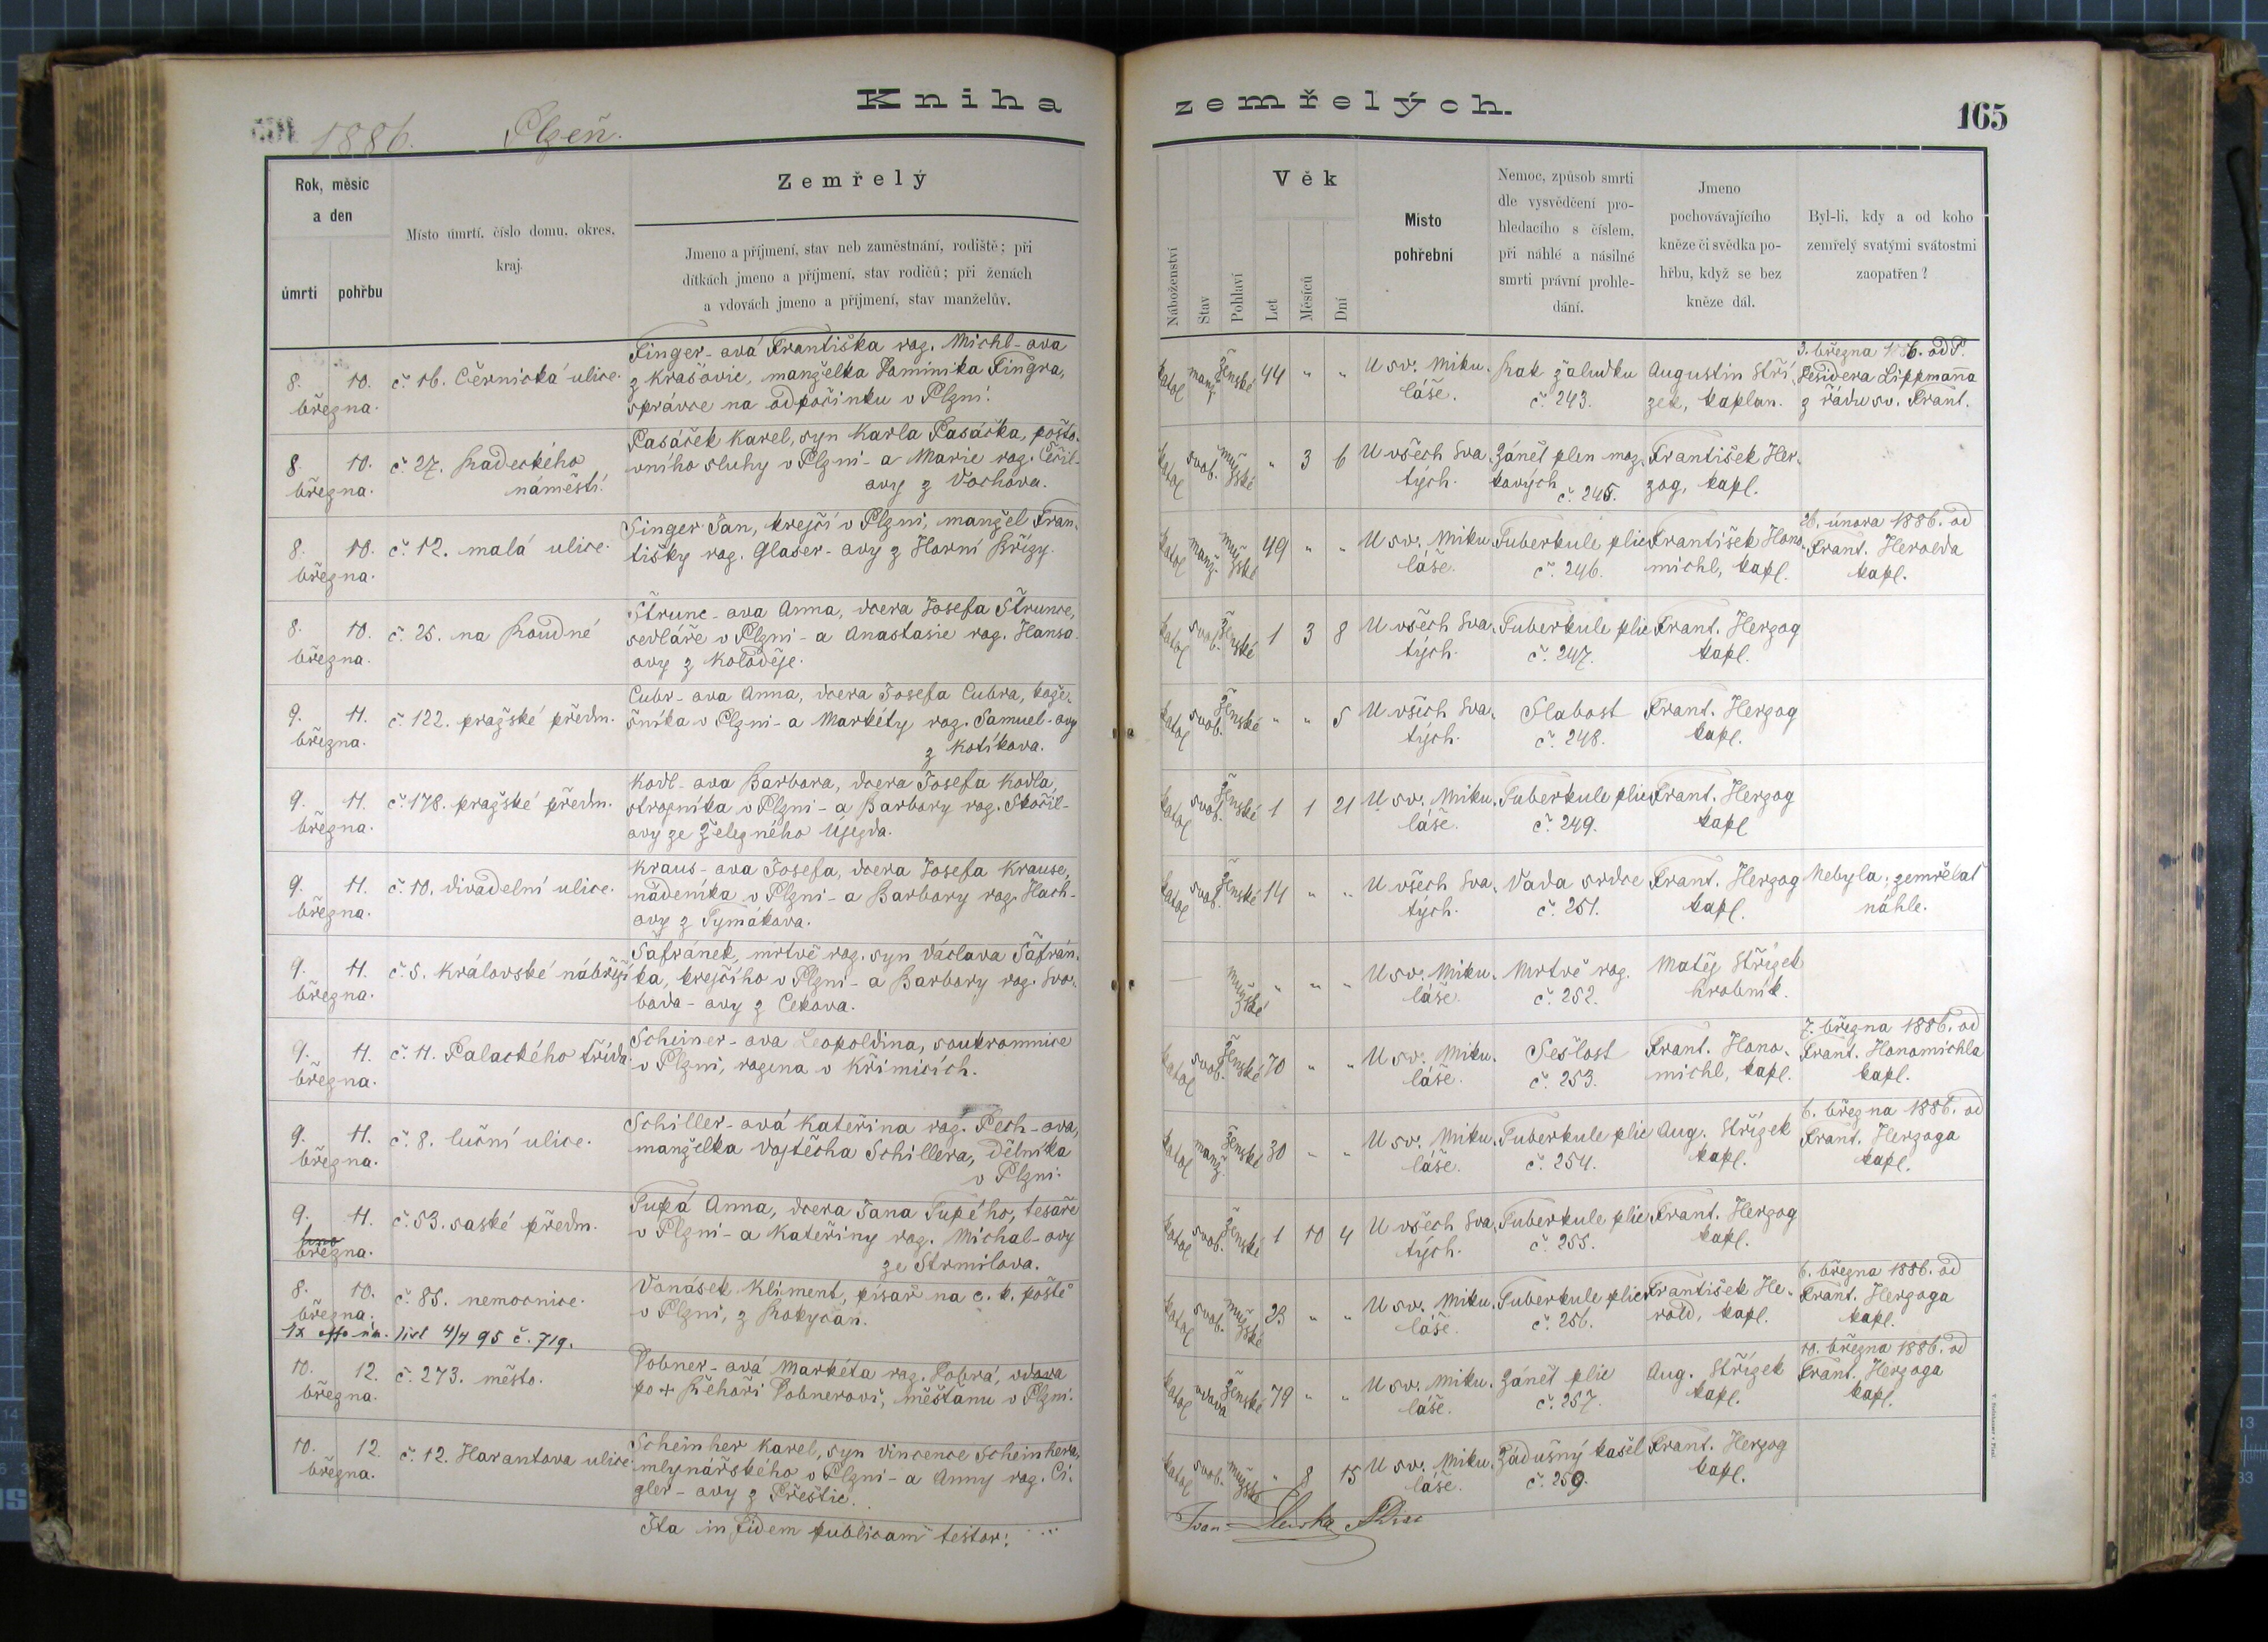 Kniha zemřelých.
165
1886. Plzeň.
Rok, měsíc
a den
úmrtí pohřbu
Místo úmrtí, číslo domu, okres,
kraj.
Zemřelý
Jmeno a příjmení, stav neb zaměstnání, rodiště; při
dítkách jmeno a příjmení, stav rodičů; při ženách
a vdovách jmeno a příjmení, stav manželův.
Náboženství
Stav
Pohlaví
Věk
Let
Měsíců
Dní
Místo
pohřební
Nemoc, způsob smrti
dle vysvědčení pro-
hledacího s číslem,
při náhlé a násilné
smrti právní prohle-
dání.
Jmeno
pochovávajícího
kněze či svědka po-
hřbu, když se bez
kněze dál.
Byl-li, kdy a od koho
zemřelý svatými svátostmi
zaopatřen?
8. 10.
března.
č. 16. Černická ulice.
Finger-ová Františka roz. Michl-ova
z Krašovic, manželka Dominika Fingra,
správce na odpočinku v Plzni.
katol manž ženské 44 " "
U sv. Miku-
láše.
Rak žaludku
č. 243.
Augustin Stří-
zek, kaplan.
3. března 1886. od P.
Desidera Lippmanna
z řádu sv. Frant.
8. 10.
března.
č. 27. Radeckého
náměstí.
Pasáček Karel, syn Karla Pasáčka, pošto-
vního sluhy v Plzni - a Marie roz. Čeřil-
ovy z Vochova.
katol svob. mužské " 3 6
U všech Sva-
tých.
Zánět plen moz-
kových č. 245.
František Her-
zog, kapl.
8. 10.
března.
č. 12. malá ulice.
Singer Jan, krejčí v Plzni, manžel Fran-
tišky roz. Glaser-ovy z Horní Břízy.
katol manž. mužské 49 " "
U sv. Miku-
láše.
Tuberkule plic
č. 246.
František Hono-
michl, kapl.
26. února 1886. od
Frant. Herolda
kapl.
8. 10.
března.
č. 25. na Roudné
Štrunc-ova Anna, dcera Josefa Štrunce,
sedláře v Plzni - a Anastasie roz. Hansa-
ovy z Koloděje.
katol svob. ženské 1 3 8
U všech Sva-
tých.
Tuberkule plic
č. 247.
Frant. Herzog
kapl.
9. 11.
března.
č. 122. pražské předm.
Cubr-ova Anna, dcera Josefa Cubra, kože-
šníka v Plzni - a Markéty roz. Samuel-ovy
z Kotíkova.
katol svob. ženské " " 5
U všech Sva-
tých.
Slabost
č. 248.
Frant. Herzog
kapl.
9. 11.
března.
č. 178. pražské předm.
Kodl-ova Barbora, dcera Josefa Kodla,
strojníka v Plzni - a Barbory roz. Skořil-
ovy ze Železného Újezda.
katol svob. ženské 1 1 21
U sv. Miku-
láše.
Tuberkule plic
č. 249.
Frant. Herzog
kapl
9. 11.
března.
č. 10. divadelní ulice.
Kraus-ova Josefa, dcera Josefa Krause,
nádeníka v Plzni - a Barbory roz. Hach-
ovy z Tymákova.
katol svob. ženské 14 " "
U všech Sva-
tých.
Vada srdce
č. 251.
Frant. Herzog
kapl.
Nebyla; zemřelať
náhle.
9. 11.
března.
č. 5. Královské nábřeží
Šafránek, mrtvě roz. syn Václava Šafrán-
ka, krejčího v Plzni - a Barbory roz. Svo-
boda-ovy z Cekova.
— mužské " " "
U sv. Miku-
láše.
Mrtvě roz.
č. 252.
Matěj Střízek
hrobník.
9. 11.
března.
č. 11. Palackého třída.
Scheiner-ova Leopoldina, soukromnice
v Plzni, rozena v Křimicích.
katol svob. ženské 70 " "
U sv. Miku-
láše.
Sešlost
č. 253.
Frant. Hono-
michl, kapl.
7. března 1886. od
Frant. Honomichla
kapl.
9. 11.
března.
č. 8. luční ulice.
Schiller-ová Kateřina roz. Pech-ova,
manželka Vojtěcha Schillera, dělníka
v Plzni.
katol manž. ženské 30 " "
U sv. Miku-
láše.
Tuberkule plic
č. 254.
Aug. Střízek
kapl.
6. března 1886. od
Frant. Herzoga
kapl.
9. 11.
března.
č. 53. saské předm.
Tupá Anna, dcera Jana Tupého, tesaře
v Plzni - a Kateřiny roz. Michal-ovy
ze Strmilova.
katol svob. ženské 1 10 4
U všech Sva-
tých.
Tuberkule plic
č. 255.
Frant. Herzog
kapl.
8. 10.
března.
č. 85. nemocnice.
Vonásek Kliment, písař na c. k. poště
v Plzni, z Rokycan.
katol svob. mužské 23 " "
U sv. Miku-
láše.
Tuberkule plic
č. 256.
František He-
rold, kapl.
6. března 1886. od
Frant. Herzoga
kapl.
1x offo úm. list 4/4 95 č. 719.
10. 12.
března.
č. 273. město.
Dobner-ová Markéta roz. Dobrá, vdova
po + Řehoři Dobnerovi, měšťanu v Plzni.
katol vdova ženské 79 " "
U sv. Miku-
láše.
Zánět plic
č. 257.
Aug. Střízek
kapl.
10. března 1886. od
Frant. Herzoga
kapl.
10. 12.
března.
č. 12. Harantova ulice.
Scheinher Karel, syn Vincence Scheinhera,
mlynářského v Plzni - a Anny roz. Ci-
gler-ovy z Přeštic.
katol svob. mužské " 8 15
U sv. Miku-
láše.
Zádušný kašel
č. 259.
Frant. Herzog
kapl.
Ita in fidem publicam testor: